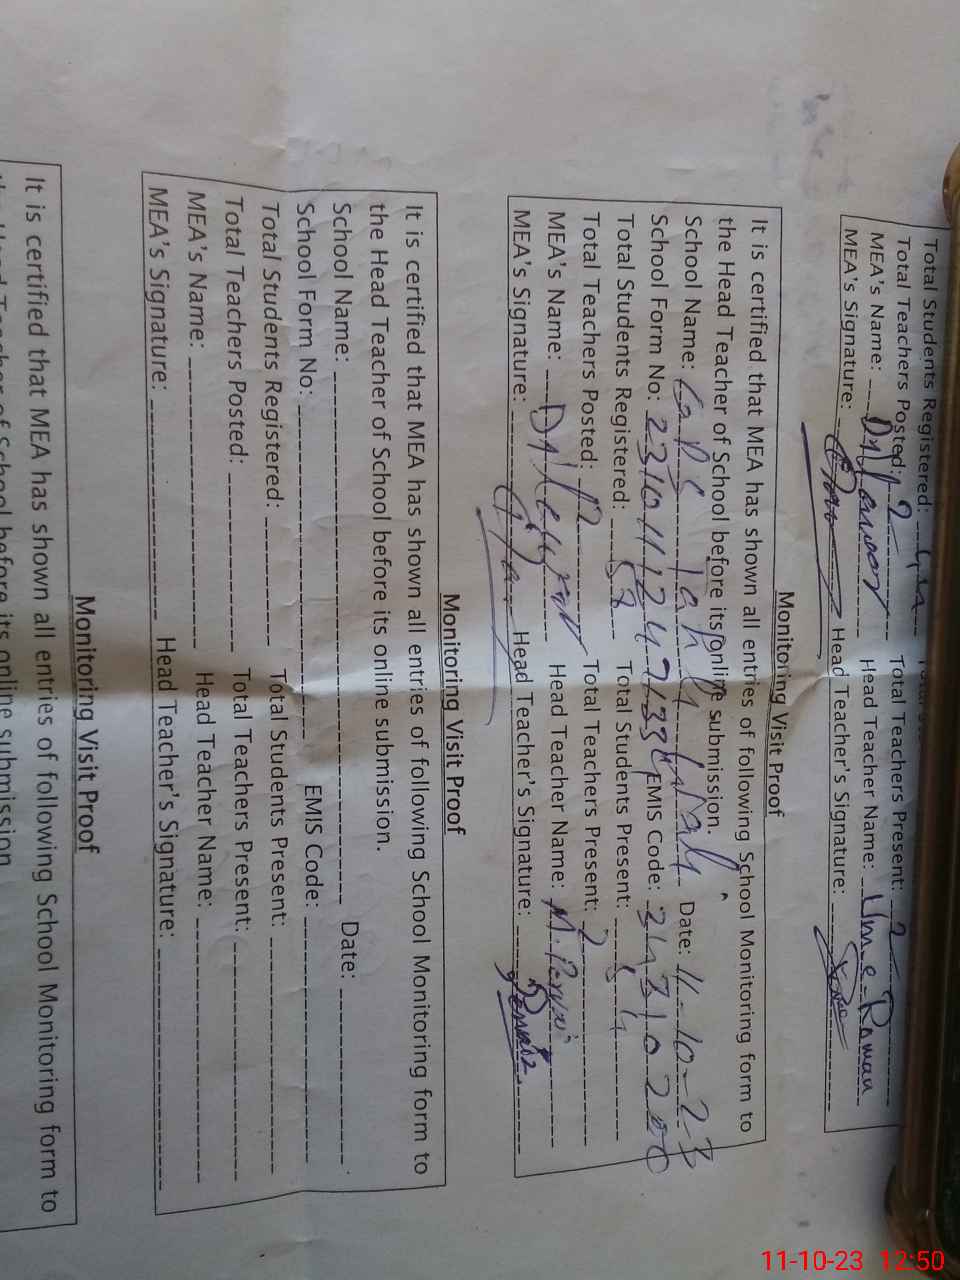 Total Students Registered:
Total Teachers Posted: 2 Total Teachers Present: 2
MEA's Name: Head Teacher Name: Ume Roman
MEA's Signature: Head Teacher's Signature:
Monitoring Visit Proof
It is certified that MEA has shown all entries of following School Monitoring form to
the Head Teacher of School before its online submission.
School Name: Date: 11-10-23
School Form No: EMIS Code:
Total Students Registered: Total Students Present:
Total Teachers Posted: 2 Total Teachers Present: 2
MEA's Name: Head Teacher Name:
MEA's Signature: Head Teacher's Signature:
Monitoring Visit Proof
It is certified that MEA has shown all entries of following School Monitoring form to
the Head Teacher of School before its online submission.
School Name: Date:
School Form No: EMIS Code:
Total Students Registered: Total Students Present:
Total Teachers Posted: Total Teachers Present:
MEA's Name: Head Teacher Name:
MEA's Signature: Head Teacher's Signature:
Monitoring Visit Proof
It is certified that MEA has shown all entries of following School Monitoring form to
the Head Teacher of School before its online submission
11-10-23 12:50